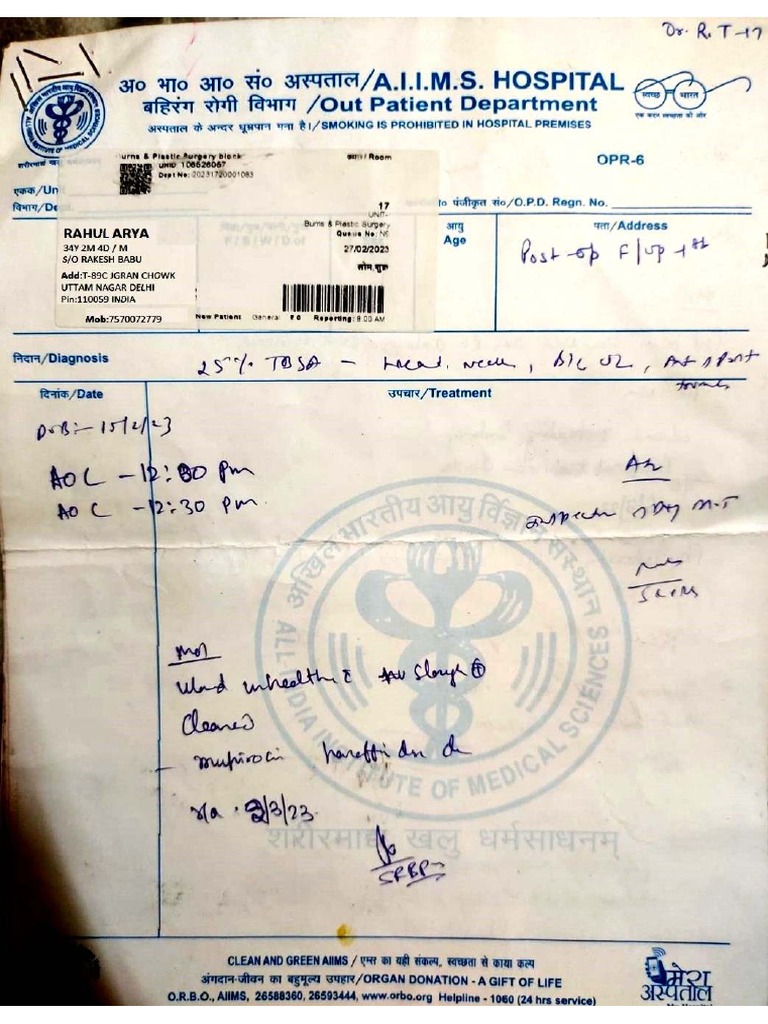 Dr. R. T-17
अ० भा० आ० सं० अस्पताल/A.I.I.M.S. HOSPITAL
बहिरंग रोगी विभाग /Out Patient Department
अस्पताल के अन्दर धूम्रपान मना है।/SMOKING IS PROHIBITED IN HOSPITAL PREMISES
स्वच्छ भारत
एक कदम स्वच्छता की ओर
OPR-6
Burns & Plastic Surgery block
UHID 108526067
Dept No: 20231720001083
कमरा / Room
17
UNIT-
Burns & Plastic Surgery
Queue No: N6
27/02/2023
सोम,शुक्र
एकक/Un
विभाग/De
पंजीकृत सं०/O.P.D. Regn. No.
RAHUL ARYA
34Y 2M 4D / M
S/O RAKESH BABU
Add:T-89C JGRAN CHOWK
UTTAM NAGAR DELHI
Pin:110059 INDIA
Mob:7570072779
New Patient General Reporting: 8:00 AM
आयु
Age
पता/Address
Post-op F/up
निदान/Diagnosis
25% TBSA - head, neck, B/L UL,
दिनांक/Date
उपचार/Treatment
DOB:- 15/2/23
AOC - 12:30 pm
AOC - 12:30 pm
slough ⊕
Cleaned
- mupirocin
3/3/23
ALL INDIA INSTITUTE OF MEDICAL SCIENCES
अखिल भारतीय आयुर्विज्ञान संस्थान
शरीरमाद्यं खलु धर्मसाधनम्
CLEAN AND GREEN AIIMS / एम्स का यही संकल्प, स्वच्छता से काया कल्प
अंगदान-जीवन का बहुमूल्य उपहार/ORGAN DONATION - A GIFT OF LIFE
O.R.B.O., AIIMS, 26588360, 26593444, www.orbo.org Helpline - 1060 (24 hrs service)
मेरा
अस्पताल